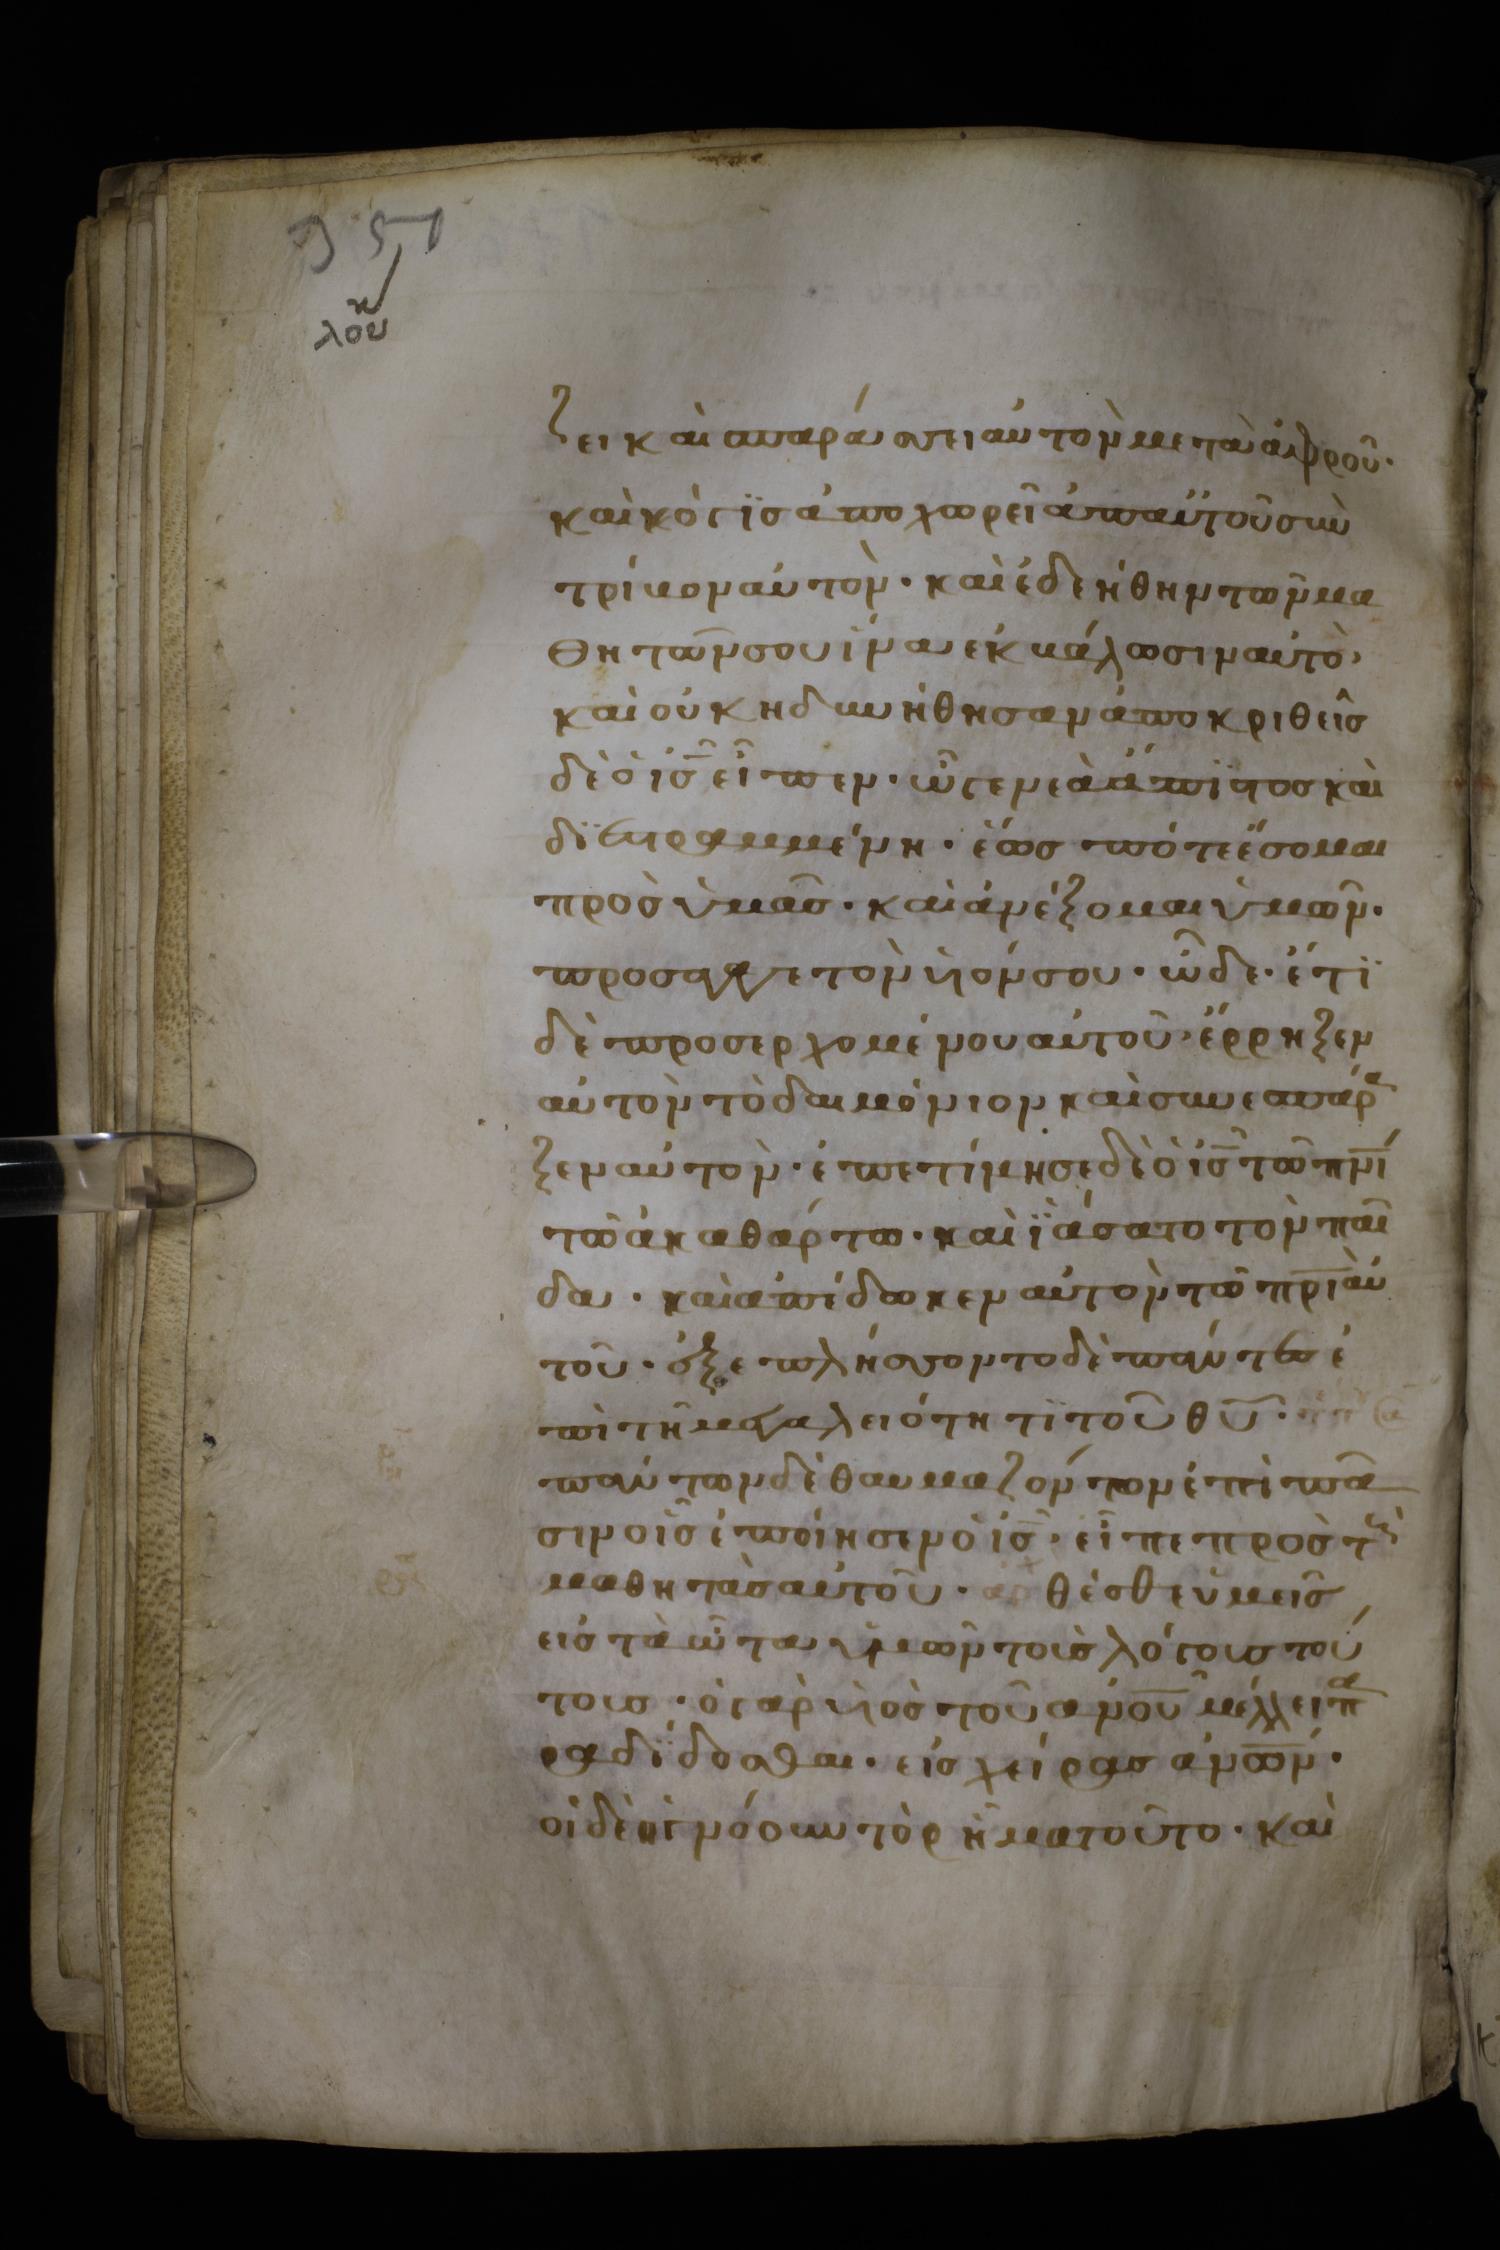 λουκ
ζει καὶ σπαράσσει αὐτὸν μετὰ ἀφροῦ·
καὶ μόγϊσ ἀποχωρεῖ ἀπαὐτοῦ συν
τρίβον αὐτὸν· καὶ ἐδεήθην τῶν μα
θητῶν σου ἵνα ἐκβάλωσιν αὐτὸ,
καὶ οὐκ ηδυνήθησαν ἀποκριθεῖσ
δὲ ὁ ισ εἶπεν· ὦ γενεὰ ἄπϊστοσ καὶ
δϊεστραμμένη· ἑώσ πότε ἔσομαι
πρὸσ ὑμᾶσ· καὶ ἀνέξομαι ὑμῶν·
προσαγαγε τὸν υἱόν σου· ὧδε· ἔτϊ
δὲ προσερχομένου αὐτοῦ, ἔρρηξεν
αὐτὸν τὸ δαιμόνιον καὶ συνεσπάρα
ξεν αὐτὸν· ἐπετίμησε δὲ ὁ ισ τῶ πνι
τῶ ἀκαθάρτω· καὶ ϊάσατο τὸν παῖ
δα· καὶ απέδωκεν αὐτὸν τῶ πρι αὐ
τοῦ· ἐξεπλήσσοντο δὲ πάντεσ ἐ
πὶ τῆ μεγαλειότητϊ τοῦ θυ·
πάντων δὲ θαυμαζόντον ἐπὶ πᾶ
σιν οἷσ ἐποίησεν ὁ ισ· εἶπε πρὸσ τοὺσ
μαθητὰσ αὐτοῦ· θέσθε ὑμεῖσ
εἰσ τὰ ὦτα ὑμῶν τοὺσ λόγουσ τού
τουσ· ὁ γὰρ υἱὸσ τοῦ ανου μέλλει πα
ραδϊδοσθαι· εἰσ χείρασ ανων·
οἱ δὲ ἠγνόουν τὸ ρῆμα τοῦτο· καὶ